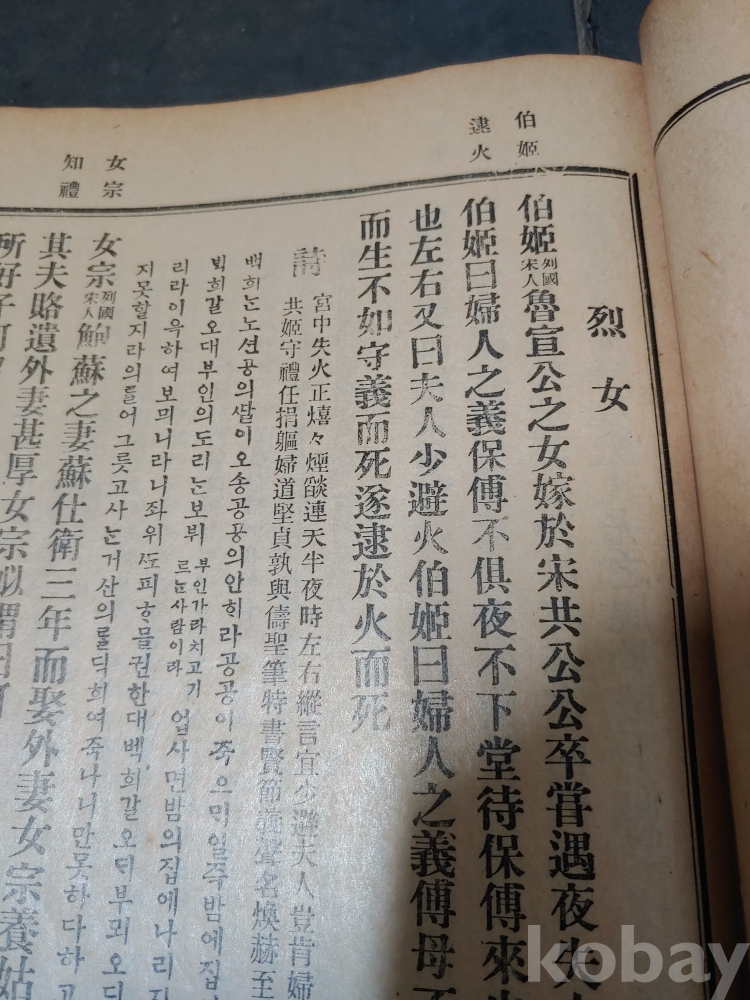 伯姬
逮火
女宗
知禮
烈女
伯姬列國宋人魯宣公之女嫁於宋共公公卒嘗遇夜失
伯姬曰婦人之義保傅不俱夜不下堂待保傅來
也左右又曰夫人少避火伯姬曰婦人之義傅母不
而生不如守義而死遂逮於火而死
詩
宮中失火正熺々煙燄連天半夜時左右縱言宜少避夫人豈肯
共姬守禮任捐軀婦道堅貞孰與儔聖筆特書賢節義聲名煥赫至
백희는노션공의딸이오송공공의안히라공공이죽으미일즉밤에집
빅희갈오대부인의도리는보뷔부인가라치고기르는사람이라업사면밤의집에나리지
리라이윽하여보믜니라니좌위또피하믈권한대백희갈오대부뫼오디
지못할지라의를어그릇고사는거산의를딕희여죽나니만못하다하고
女宗列國宋人鮑蘇之妻蘇仕衛三年而娶外妻女宗養姑
其夫賂遺外妻甚厚女宗姒謂曰可
所好子何
kobay